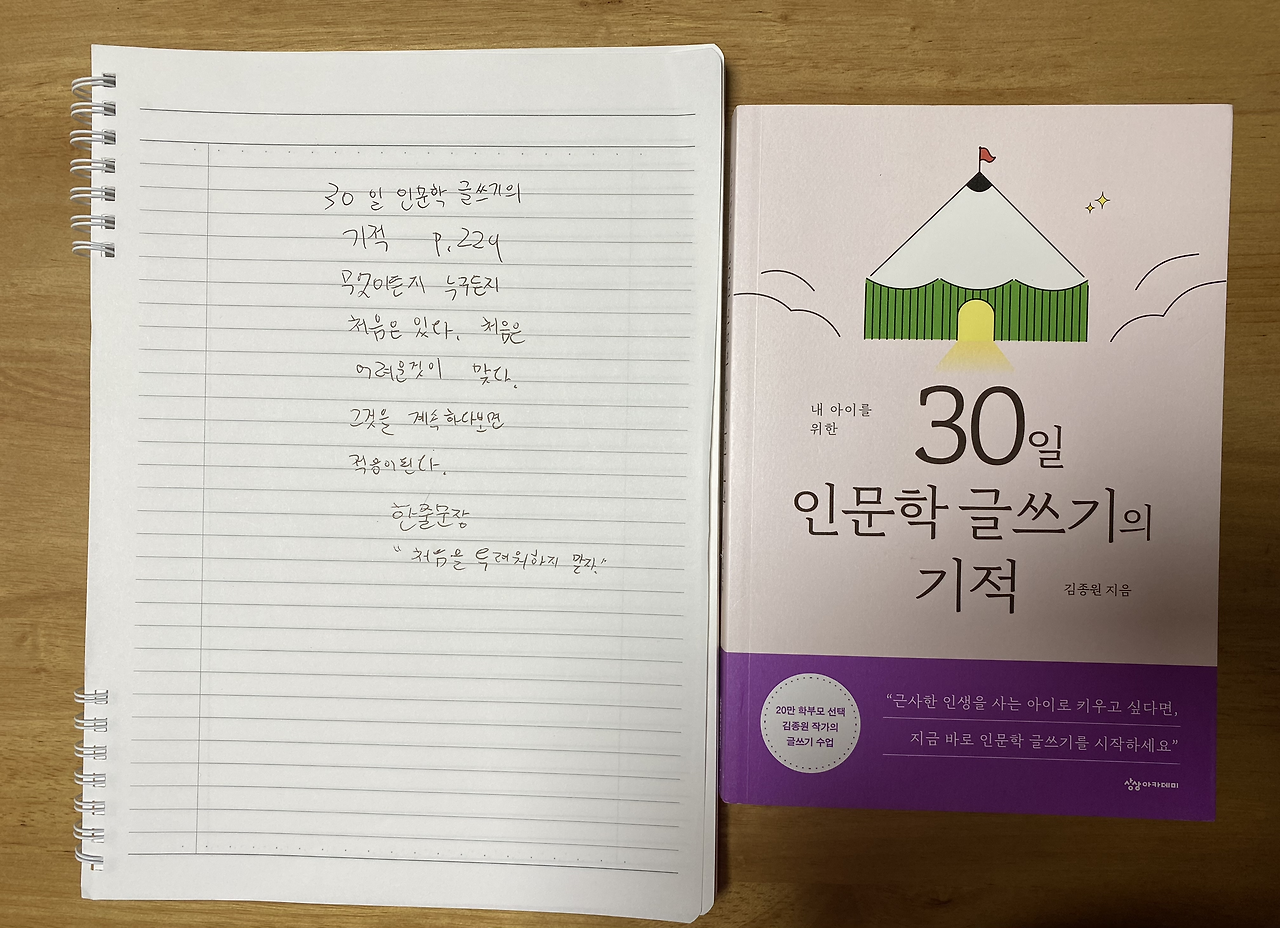 30일 인문학 글쓰기의
기적 p.229
무엇이든지 누구든지
처음은 있다. 처음은
어려운것이 맞다.
그것을 계속하다보면
적응이된다.
한줄문장
"처음을 두려워하지 말자."
내 아이를
위한
30일
인문학 글쓰기의
기적
김종원 지음
20만 학부모 선택
김종원 작가의
글쓰기 수업
“근사한 인생을 사는 아이로 키우고 싶다면,
지금 바로 인문학 글쓰기를 시작하세요”
상상아카데미